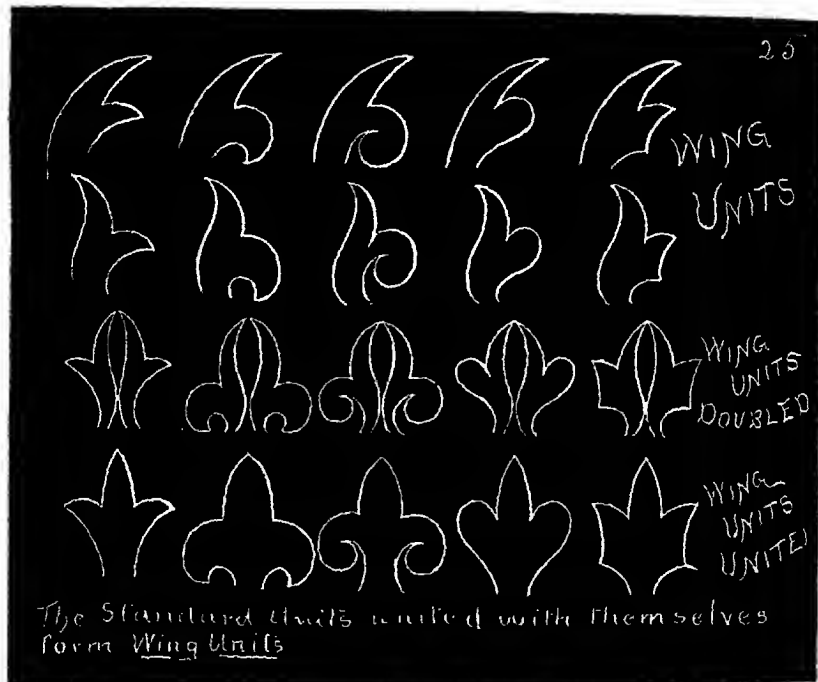 25
WING
UNITS
WING
UNITS
DOUBLED
WING
UNITS
UNITED
The Standard Units united with themselves
form Wing Units